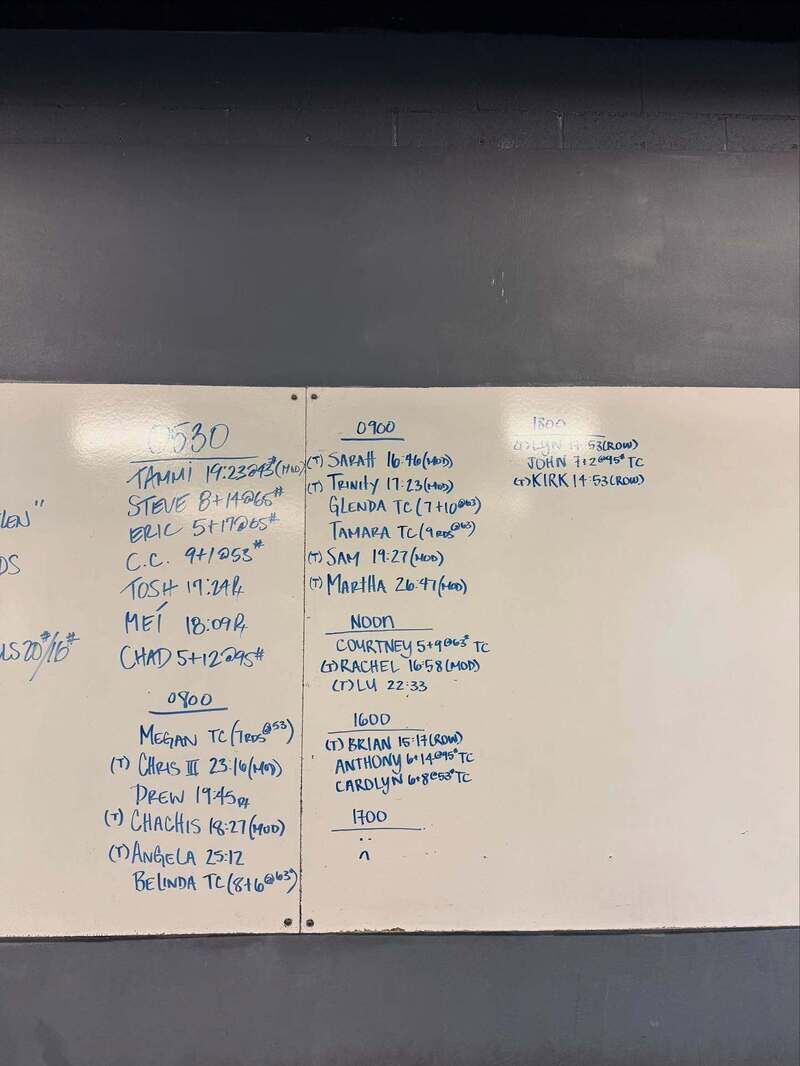 LEN"
DS
LS 20#/16#
0530
TAMMI 19:23@43#(MOD)
STEVE 8+14@65#
ERIC 5+17@65#
C.C. 9+1@53#
TOSH 17:24Rx
MEÍ 18:09Rx
CHAD 5+12@95#
0800
MEGAN TC(7RDS@53)
(T) CHRIS III 23:16(MOD)
DREW 19:45Rx
(T) CHACHIS 18:27(MOD)
(T) ANGELA 25:12
BELINDA TC(8+6@63#)
0900
(T) SARAH 16:46(MOD)
(T) TRINITY 17:23(MOD)
GLENDA TC(7+10@63)
TAMARA TC(9RDS@63)
(T) SAM 19:27(MOD)
(T) MARTHA 26:47(MOD)
NOON
COURTNEY 5+9@63# TC
(T) RACHEL 16:58(MOD)
(T) LU 22:33
1600
(T) BRIAN 15:17(ROW)
ANTHONY 6+14@95# TC
CAROLYN 6+8@53# TC
1700
1800
(T) LYN 17:53(ROW)
JOHN 7+2@95# TC
(T) KIRK 14:53(ROW)